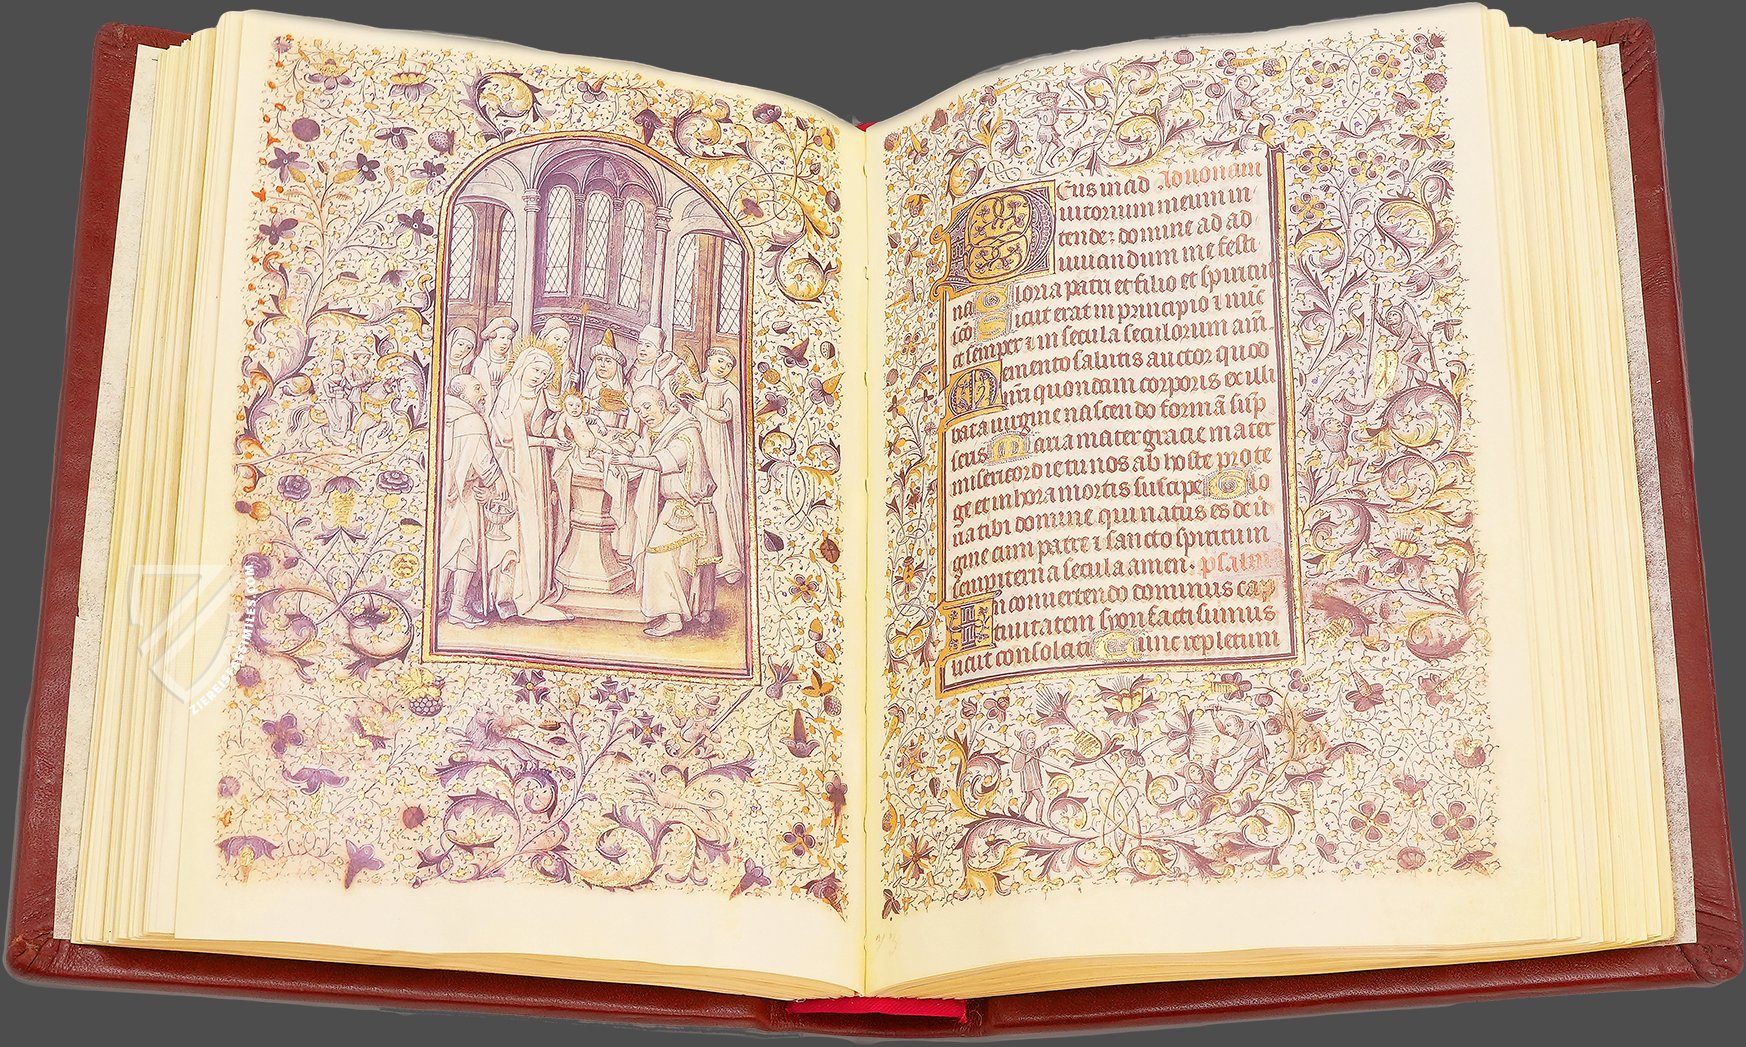 Deus in ad Ad nonam
iutorium meum in
tende: domine ad ad
iuuandum me festi
na Gloria patri et filio et spiritui
sc̄o Sicut erat in principio ⁊ nūc
et semper ⁊ in secula seculorum am̄.
Memento salutis auctor quod
nr̄i quondam corporis ex illi
bata uirgine nascendo formā sūp
seris Maria mater gracie mater
misericordie tu nos ab hoste prote
ge et in hora mortis suscipe Glo
ria tibi domine qui natus es de ui
gine cum patre ⁊ sancto spiritum
sempiterna secula amen. psalm
In conuertendo dominus cap
tiuitatem syon facti sumus
sicut consolati Tunc repletum
ZIEREIS-FAKSIMILES.COM